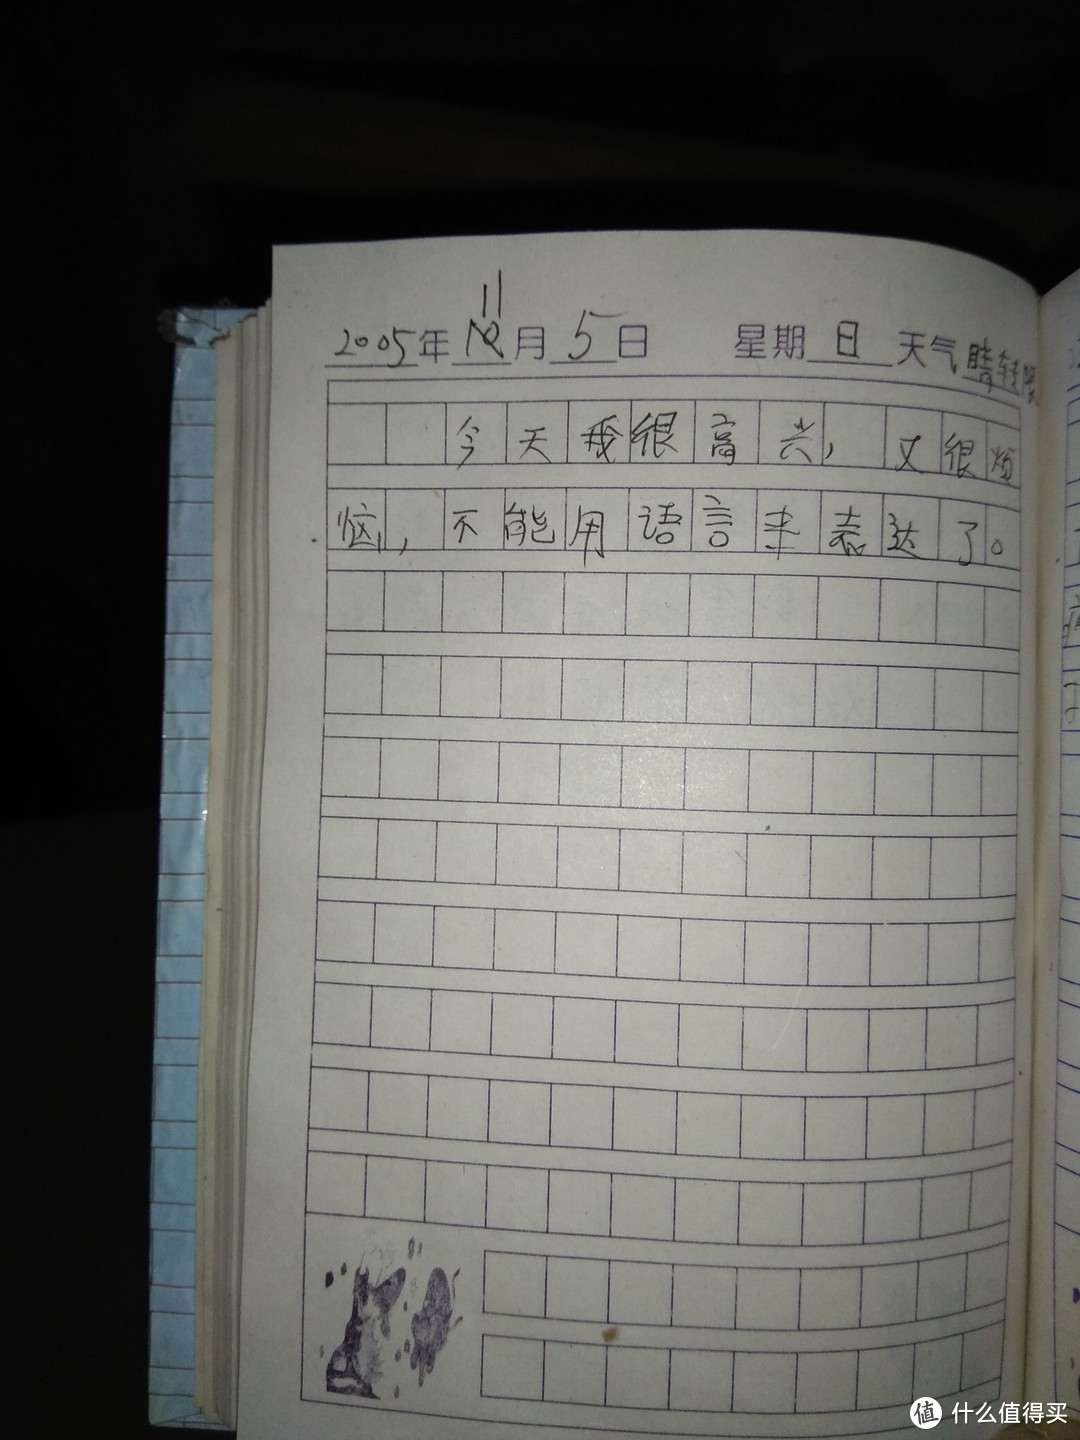 11
2005年 月 5日 星期日 天气 晴转阴
今天我很高兴, 又很烦
恼, 不能用语言来表达了。
值 什么值得买